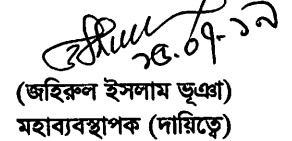 ২৫.০৭.১৯
(জহিরুল ইসলাম ভূঞা)
মহাব্যবস্থাপক (দায়িত্বে)